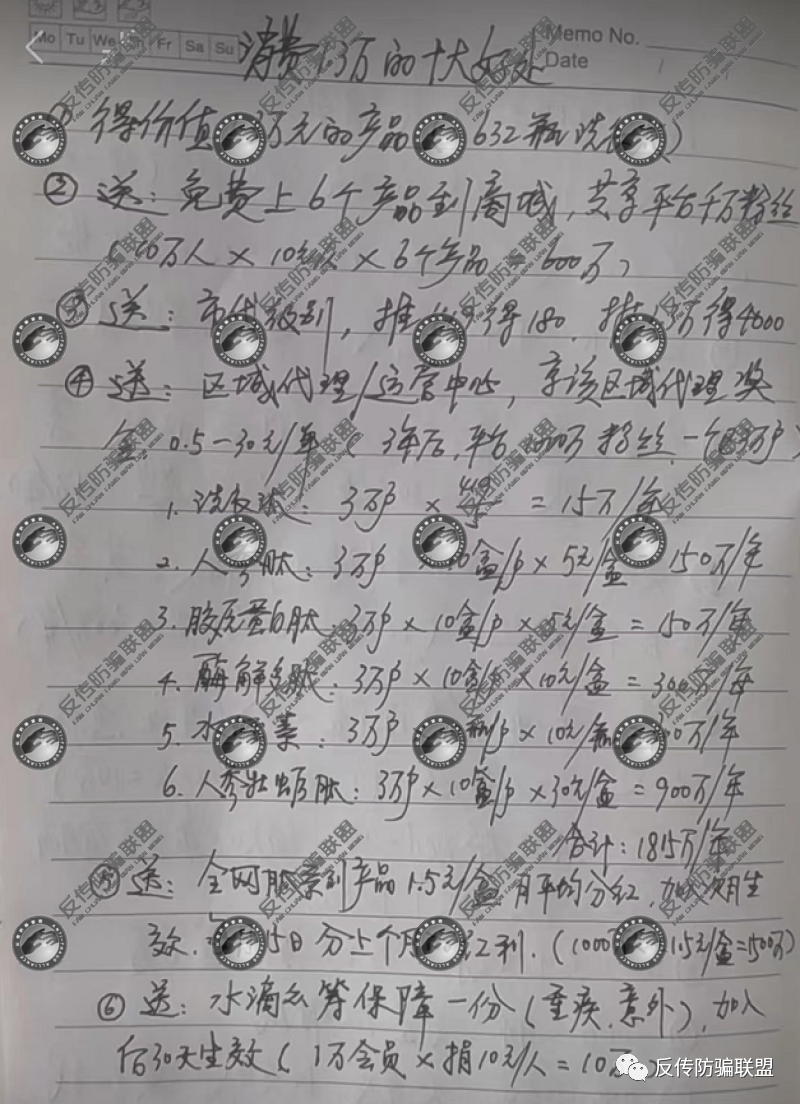 Mo Tu We Fr Sa Su
Memo No.
Date
消费1.3万的十大好处
① 得价值 万元的产品 632瓶洗
② 送：免费上6个产品到商城，共享平台千万粉丝
万人 × 10元/人 × 6个产品 = 600万）
③ 送：市代级别，推 得180，推 万得4000
④ 送：区域代理/运营中心，享该区域代理奖
金，0.5-30元/单（3年后，平台 万粉丝，一个 3万户）
1. 洗衣液：3万户 × = 15万/年
2. 人参肽：3万户 × 10盒/户 × 5元/盒 150万/年
3. 胶原蛋白肽：3万户 × 10盒/户 × 5元/盒 = 150万/年
4. 酶解 肽：3万户 × 10盒/户 × 10元/盒 = 300万/年
5. 水 素：3万户 瓶/户 × 10元/瓶 300万/年
6. 人参牡蛎肽：3万户 × 10盒/户 × 30元/盒 = 900万/年
合计：1815万/年
⑤ 送：全网肽系列产品1.5元/盒月平均分红，加入次月生
效， 15日分上个月 红利．（1000万 1.5元/盒=1500万）
⑥ 送：水滴公筹保障一份（重疾、意外），加入
后30天生效（1万会员 × 捐10元/人 = 10万）
反传防骗联盟
反传防骗联盟
FAN CHUAN FANG PIAN LIAN MENG